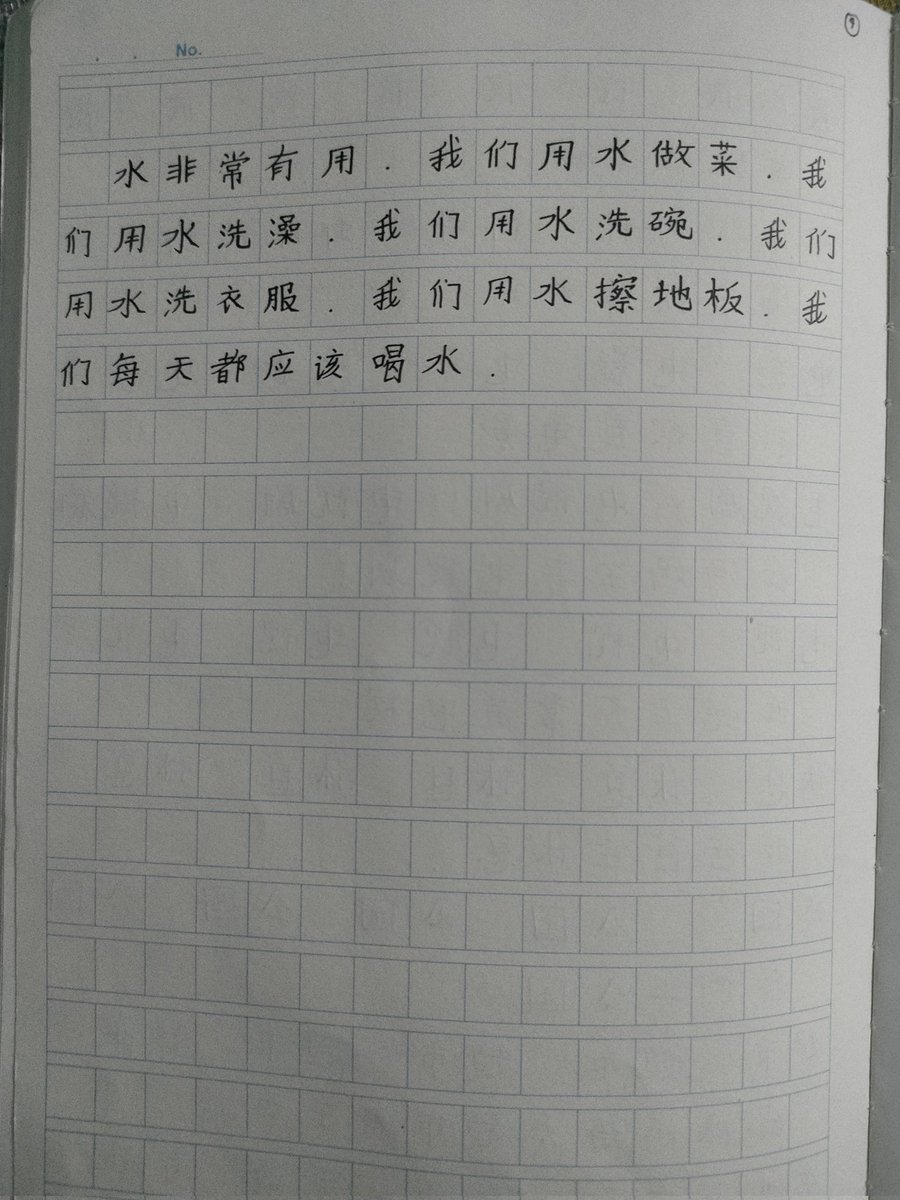 9
No.
水非常有用.我们用水做菜.我
们用水洗澡.我们用水洗碗.我们
用水洗衣服.我们用水擦地板.我
们每天都应该喝水.